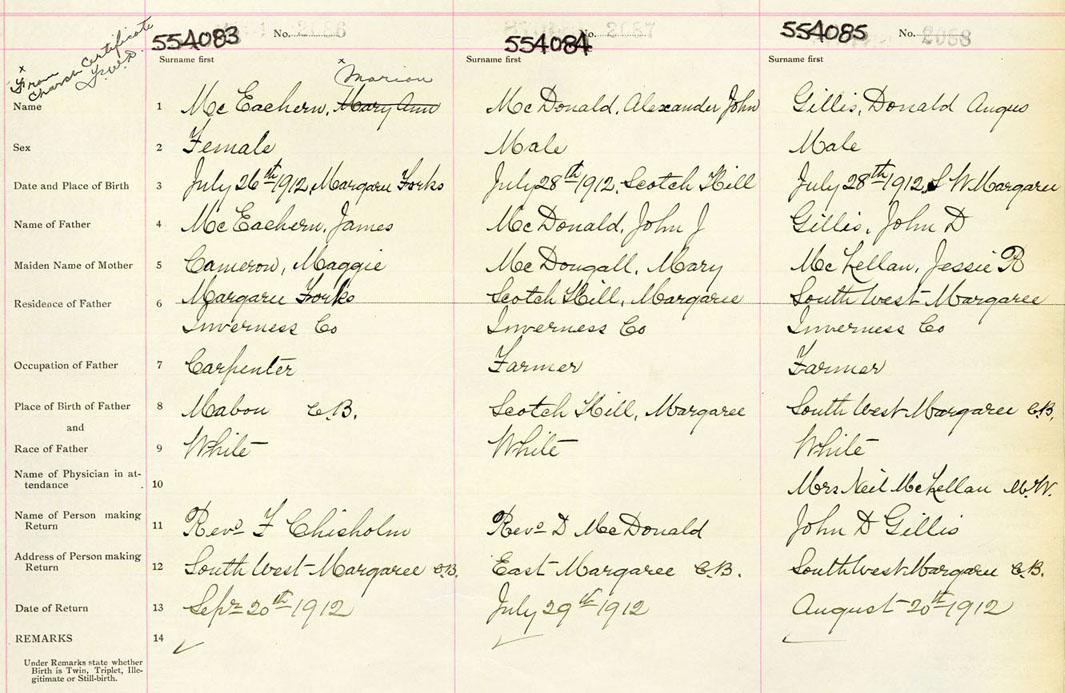 x From
Church Certificate
554083 No. 2086 554084 No. 2087 554085 No. 2088
Surname first Surname first Surname first
x Marion
Name 1 McEachern, Mary Ann McDonald, Alexander John Gillis, Donald Angus
Sex 2 Female Male Male
Date and Place of Birth 3 July 26th 1912, Margaree Forks July 28th 1912, Scotch Hill July 28th 1912, S W Margaree
Name of Father 4 McEachern, James McDonald, John J Gillis, John D
Maiden Name of Mother 5 Cameron, Maggie McDougall, Mary McLellan, Jessie B
Residence of Father 6 Margaree Forks Scotch Hill, Margaree South West Margaree
Inverness Co Inverness Co Inverness Co
Occupation of Father 7 Carpenter Farmer Farmer
Place of Birth of Father 8 Mabou C.B. Scotch Hill, Margaree South West Margaree C.B.
and
Race of Father 9 White White White
Name of Physician in at-
tendance 10 Mrs Neil McLellan M.W.
Name of Person making
Return 11 Revd F Chisholm Revd D McDonald John D Gillis
Address of Person making
Return 12 South West Margaree C.B. East Margaree C.B. South West Margaree C.B.
Date of Return 13 Sept 20th 1912 July 29th 1912 August 20th 1912
REMARKS 14
Under Remarks state whether
Birth is Twin, Triplet, Ille-
gitimate or Still-birth.